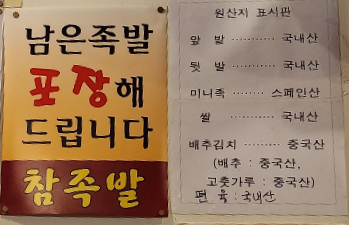 남은족발
포장해
드립니다
참족발
원산지 표시판
앞 발 ············ 국내산
뒷 발 ············ 국내산
미니족 ········· 스페인산
쌀 ············ 국내산
배추김치 ·········· 중국산
(배추 : 중국산,
고춧가루 : 중국산)
편 육 : 국내산